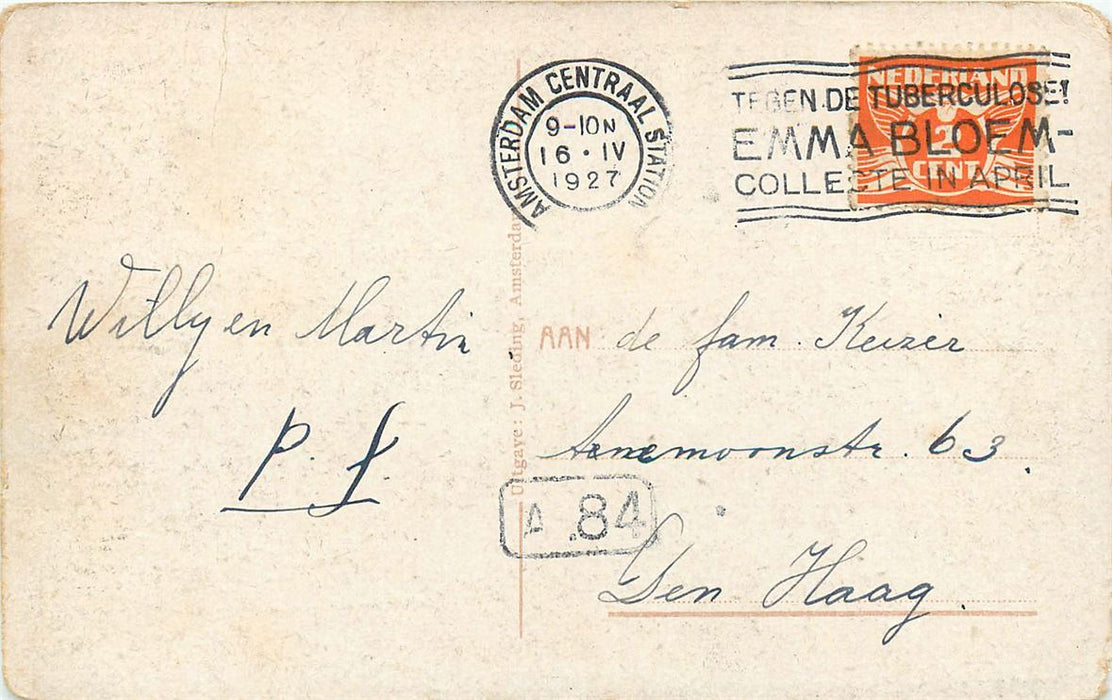 AMSTERDAM CENTRAAL STATION
9-10N
16 • IV
1927
NEDERLAND
2
CENT
TEGEN DE TUBERCULOSE!
EMMA BLOEM-
COLLECTE IN APRIL
Willy en Martin
P. f.
Uitgave: J. Sleding, Amsterda
AAN de fam. Keizer
Anemoonstr. 63.
A .84
Den Haag.